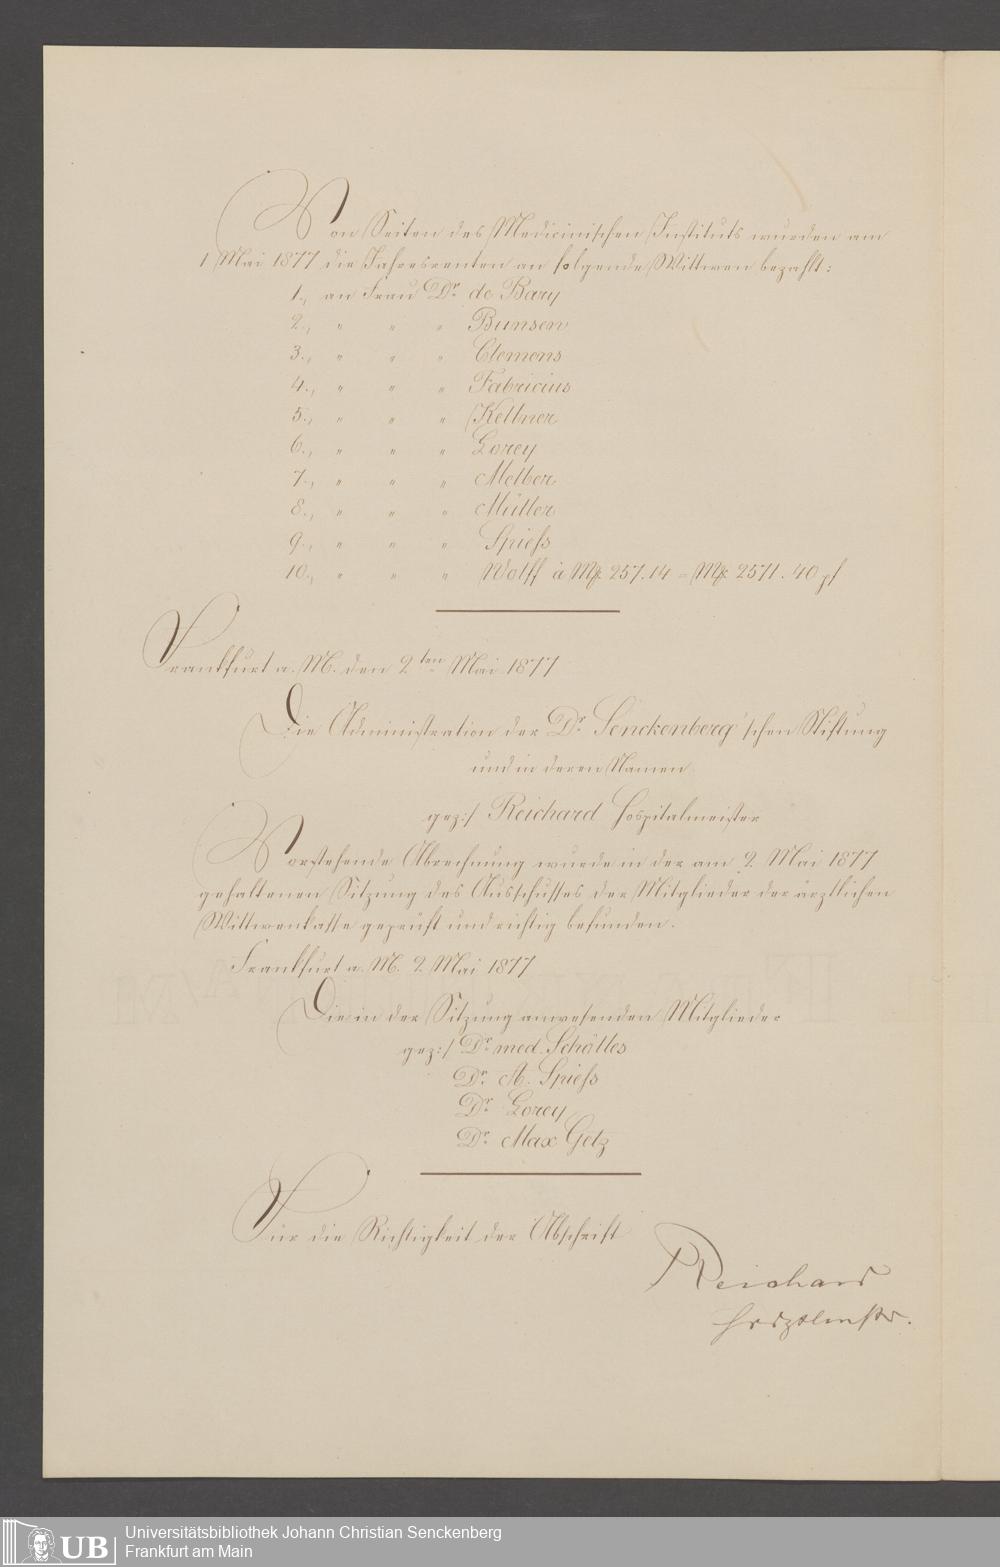 Von Seiten des Medicinischen Instituts wurden am
1 Mai 1877 die Jahresrenten an folgende Wittwen bezahlt:
1., an Frau Dr. de Bary
2., " " " Bunsen
3., " " " Clemens
4., " " " Fabricius
5., " " " Kellner
6., " " " Lorey
7., " " " Melber
8., " " " Müller
9., " " " Spieß
10., " " " Wolff à Mk 257.14 = Mk 2571.40 pf
Frankfurt a. M. den 2ten Mai 1877
Die Administration der Dr. Senckenberg'schen Stiftung
und in deren Namen
gez:/ Reichard Hospitalmeister
Vorstehende Abrechnung wurde in der am 2. Mai 1877
gehaltenen Sitzung des Ausschusses der Mitglieder der ärztlichen
Wittwenkasse geprüft und richtig befunden.
Frankfurt a. M. 2 Mai 1877
Die in der Sitzung anwesenden Mitglieder
gez:/ Dr. med. Schölles
Dr. A. Spieß
Dr. Lorey
Dr. Max Getz
Für die Richtigkeit der Abschrift
Reichard
UB
Universitätsbibliothek Johann Christian Senckenberg
Frankfurt am Main